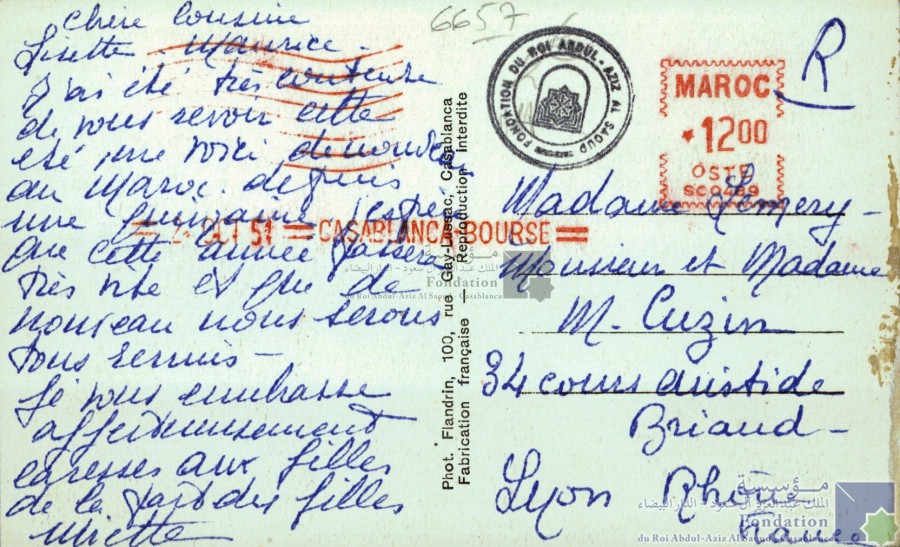 6657
Chère Cousine
Lisette - Maurice -
J'ai été très contente
de vous revoir cette
été, me voici de nouveau
au Maroc depuis
une quinzaine j'espère
que cette année passera
très vite et que de
nouveau nous serons
tous réunis -
Je vous embrasse
affectueusement
caresses aux filles
de la part des filles
Miette
Phot. Flandrin, 100, rue Gay-Lussac, Casablanca
Fabrication française — Reproduction Interdite
FONDATION DU ROI ABDUL-AZIZ AL SAOUD
MAROC
*1200
OSTE
SC0489
R
OCT 51 CASABLANCA BOURSE
Madame
Monsieur et Madame
M. Cuzin
34 cours aristide
Briand -
Lyon Rhône
France
مؤسسة
الملك عبد العزيز آل سعود - الدار البيضاء
Fondation
du Roi Abdul-Aziz Al Saoud - Casablanca
مؤسسة
الملك عبد العزيز آل سعود - الدار البيضاء
Fondation
du Roi Abdul-Aziz Al Saoud - Casablanca